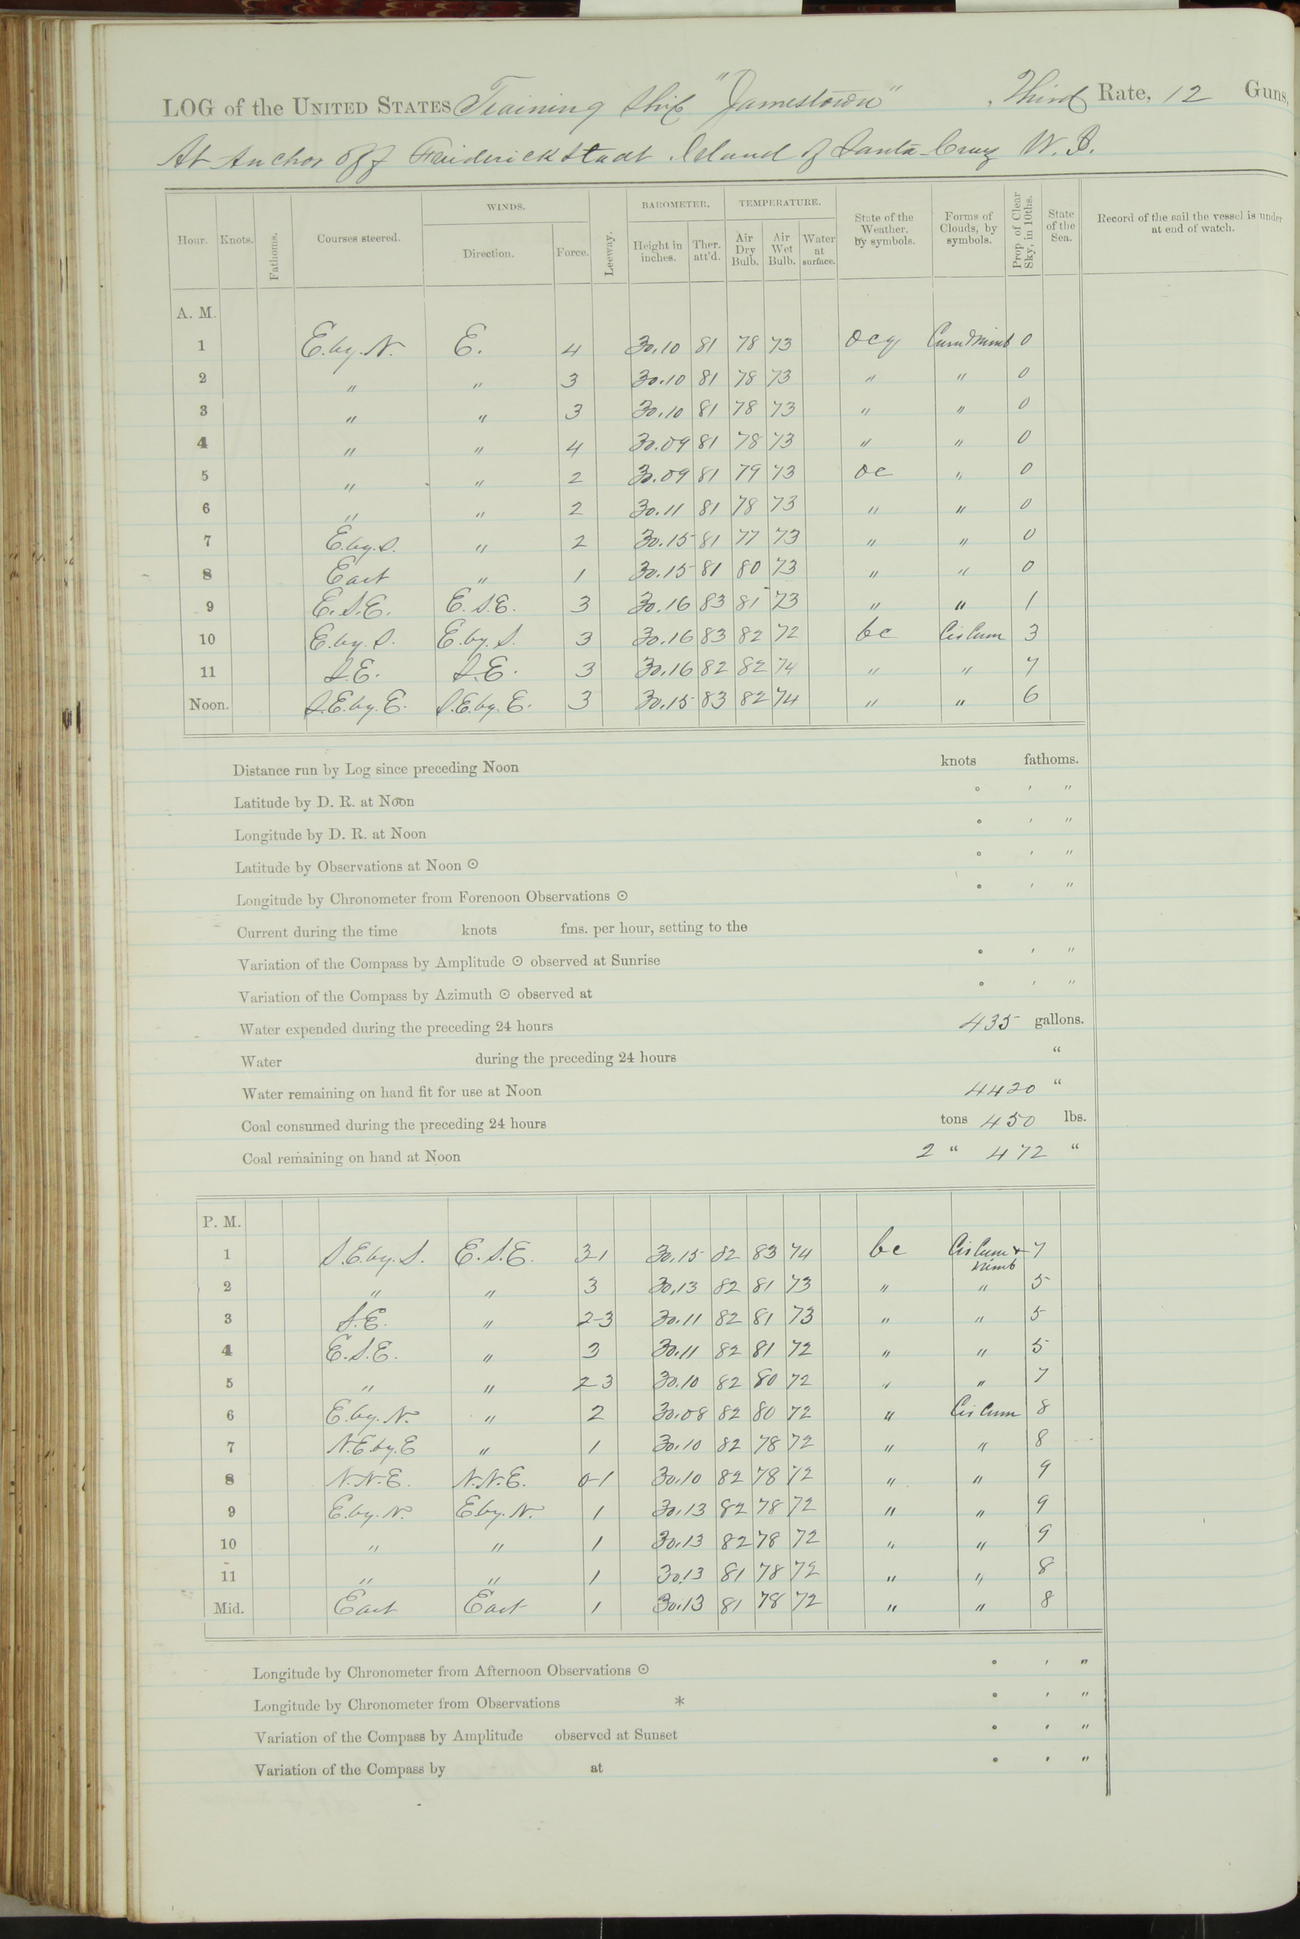 LOG of the UNITED STATES Training Ship "Jamestown", Third Rate, 12 Guns,
At Anchor off Freiderickstadt Island of Santa Cruz W. I.
Hour. Knots. Fathoms. Courses steered. WINDS. Direction. Force. Leeway. BAROMETER. Height in inches. Ther. att'd. TEMPERATURE. Air Dry Bulb. Air Wet Bulb. Water at surface. State of the Weather, by symbols. Forms of Clouds, by symbols. Prop of Clear Sky, in 10ths. State of the Sea. Record of the sail the vessel is under at end of watch.
A. M.
1 E. by. N. E. 4 30.10 81 78 73 ocq Cum & Nimb 0
2 " " 3 30.10 81 78 73 " " 0
3 " " 3 30.10 81 78 73 " " 0
4 " " 4 30.09 81 78 73 " " 0
5 " " 2 30.09 81 79 73 oc " 0
6 " " 2 30.11 81 78 73 " " 0
7 E. by. S. " 2 30.15 81 77 73 " " 0
8 East " 1 30.15 81 80 73 " " 0
9 E. S. E. E. S. E. 3 30.16 83 81 73 " " 1
10 E. by. S. E. by. S. 3 30.16 83 82 72 bc Cis Cum 3
11 S. E. S. E. 3 30.16 82 82 74 " " 7
Noon. S. E. by. E. S. E. by. E. 3 30.15 83 82 74 " " 6
Distance run by Log since preceding Noon knots fathoms.
Latitude by D. R. at Noon ° ′ ″
Longitude by D. R. at Noon ° ′ ″
Latitude by Observations at Noon ⊙ ° ′ ″
Longitude by Chronometer from Forenoon Observations ⊙ ° ′ ″
Current during the time knots fms. per hour, setting to the
Variation of the Compass by Amplitude ⊙ observed at Sunrise ° ′ ″
Variation of the Compass by Azimuth ⊙ observed at ° ′ ″
Water expended during the preceding 24 hours 435 gallons.
Water during the preceding 24 hours "
Water remaining on hand fit for use at Noon 4420 "
Coal consumed during the preceding 24 hours tons 450 lbs.
Coal remaining on hand at Noon 2 " 472 "
P. M.
1 S. E. by. S. E. S. E. 3-1 30.15 82 83 74 bc Cis Cum & Nimb 7
2 " " 3 30.13 82 81 73 " " 5
3 S. E. " 2-3 30.11 82 81 73 " " 5
4 E. S. E. " 3 30.11 82 81 72 " " 5
5 " " 2-3 30.10 82 80 72 " " 7
6 E. by. N. " 2 30.08 82 80 72 " Cis Cum 8
7 N. E. by. E " 1 30.10 82 78 72 " " 8
8 N. N. E. N. N. E. 0-1 30.10 82 78 72 " " 9
9 E. by. N. E. by. N. 1 30.13 82 78 72 " " 9
10 " " 1 30.13 82 78 72 " " 9
11 " " 1 30.13 81 78 72 " " 8
Mid. East East 1 30.13 81 78 72 " " 8
Longitude by Chronometer from Afternoon Observations ⊙ ° ′ ″
Longitude by Chronometer from Observations * ° ′ ″
Variation of the Compass by Amplitude observed at Sunset ° ′ ″
Variation of the Compass by at ° ′ ″